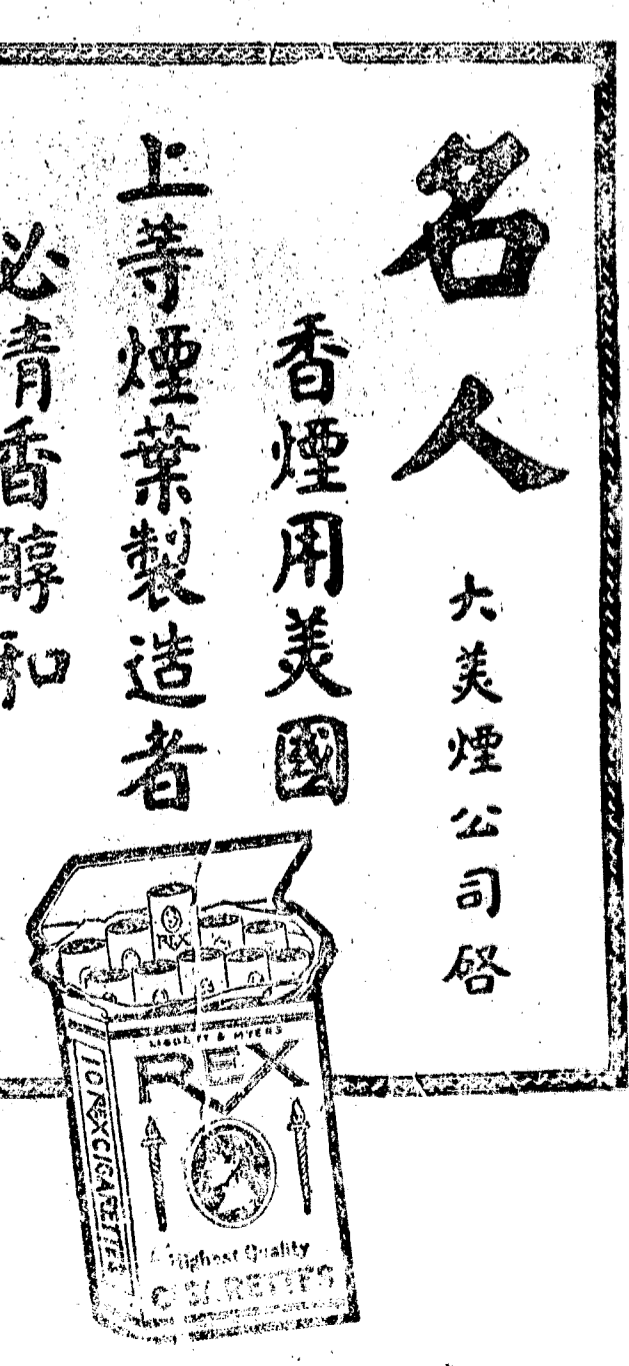 名人
大美煙公司啓
香煙用美國
上等煙葉製造者
必青香醇和
REX
LIGGETT & MYERS
REX
10 REX CIGARETTES
Highest Quality
CIGARETTES